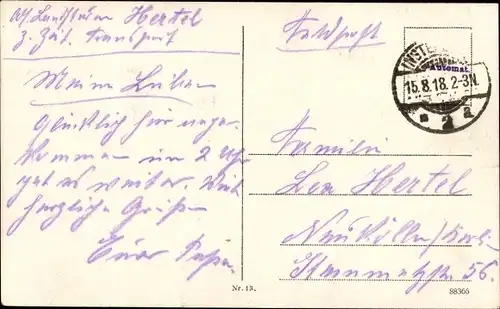 Abs. Landsturm Hertel
z. Zt. Transport
Meine Lieben
Glücklich hier ange-
kommen um 2 Uhr
geht es weiter. Viele
herzliche Grüße
Euer Papa.
Feldpost
INSTER
Automat.
15.8.18. 2-3N.
* a a
Familie
Leo Hertel
Neukölln/Berlin
56.
Nr. 13.
88366